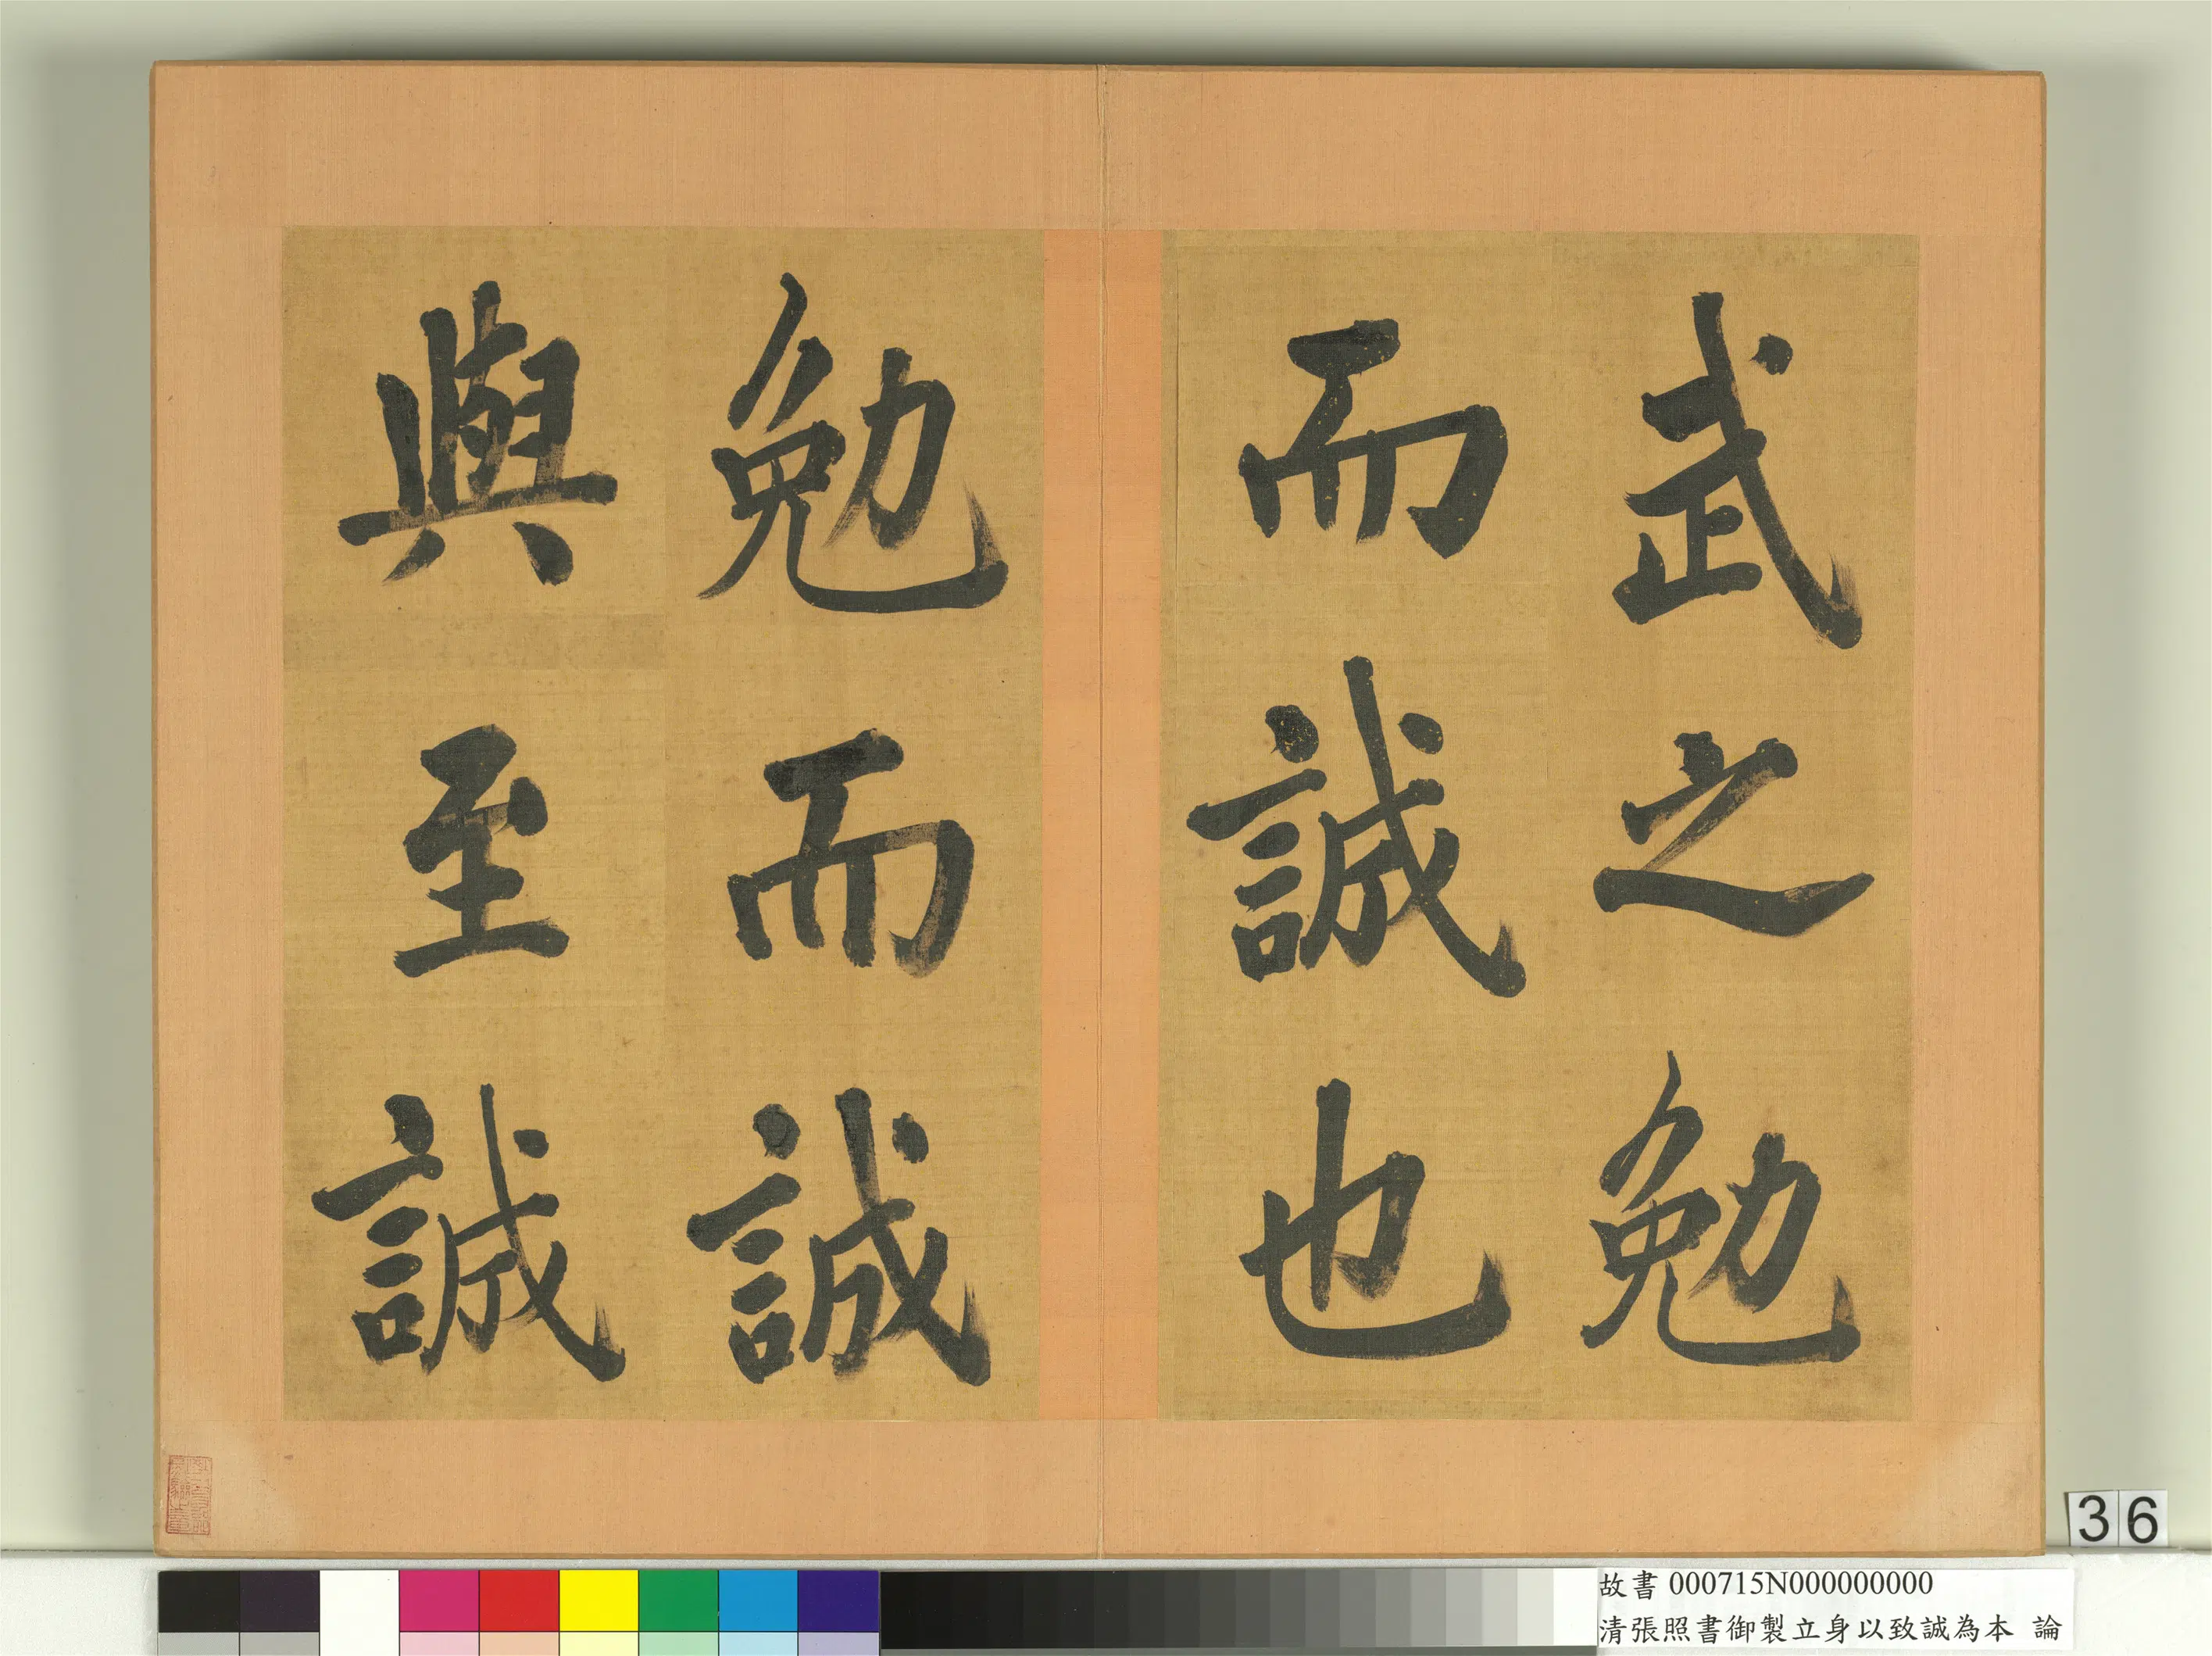 武之勉
而誠也
勉而誠
與至誠
36
故書 000715N000000000
清張照書御製立身以致誠為本 論